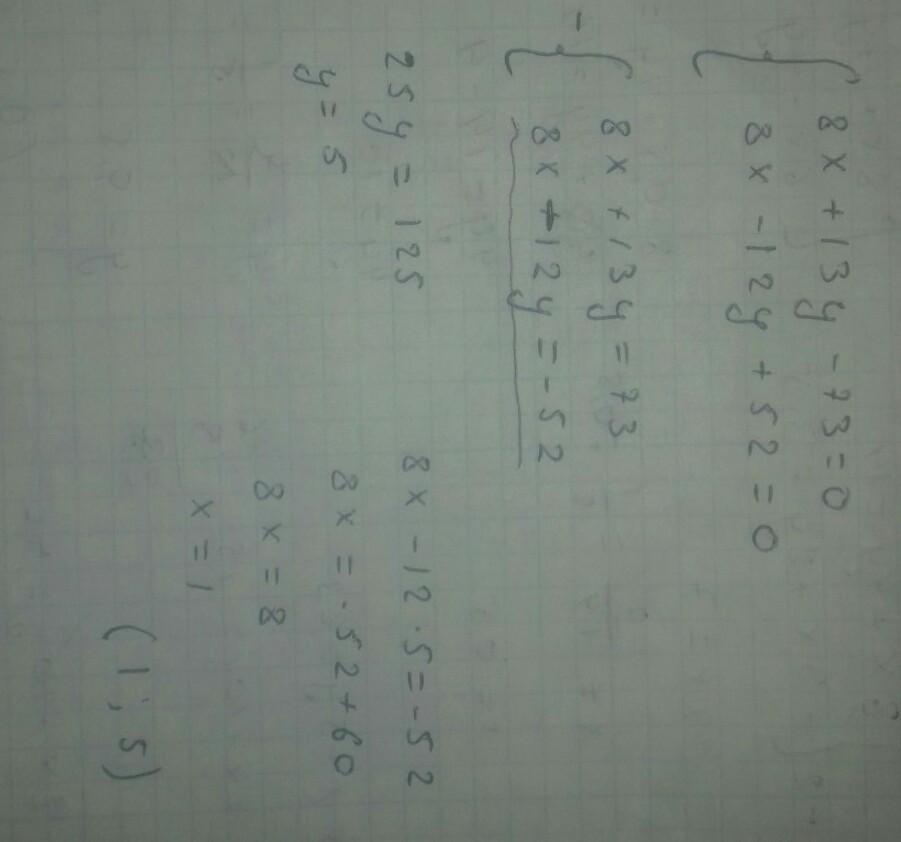 8x + 13y - 73 = 0
8x - 12y + 52 = 0
-
8x + 13y = 73
8x - 12y = -52
25y = 125
y = 5
8x - 12 · 5 = -52
8x = -52 + 60
8x = 8
x = 1
(1; 5)